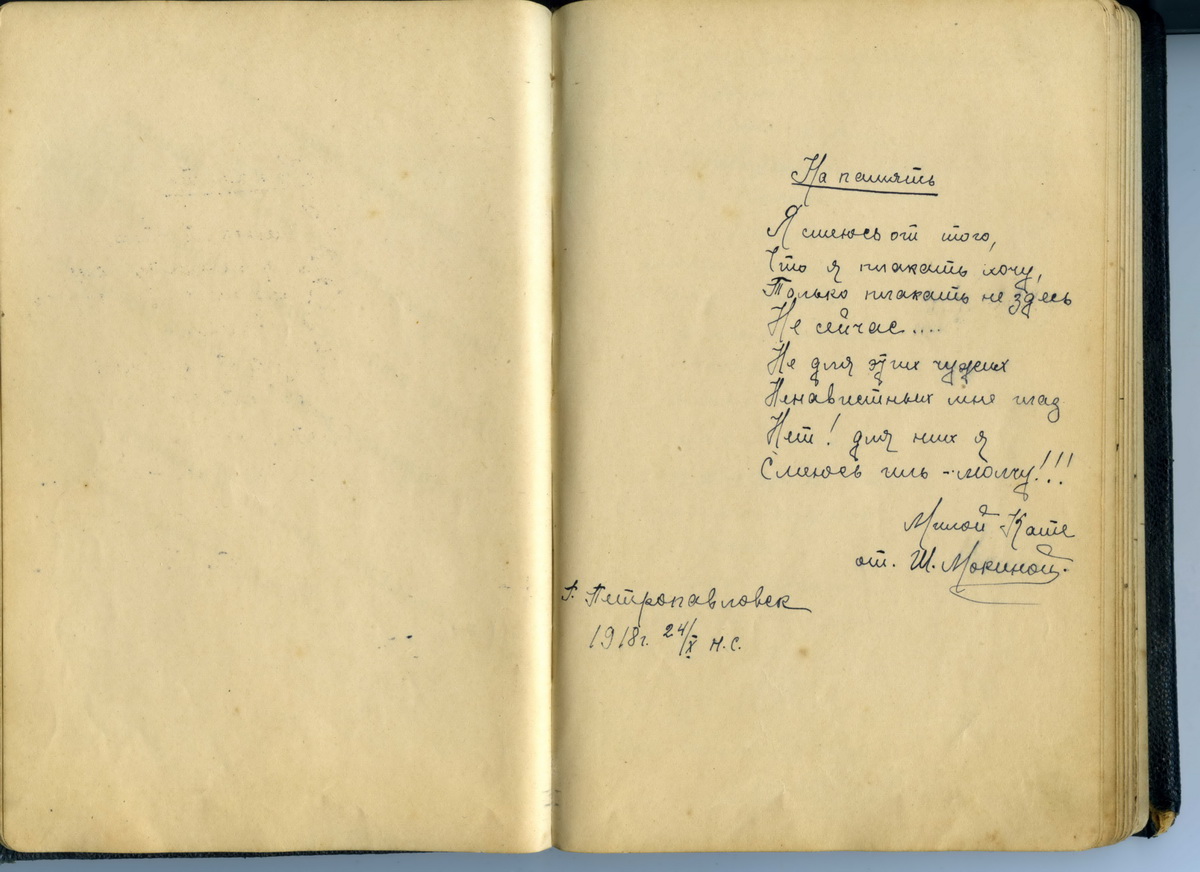 На память
Я смеюсь от того,
Что я плакать хочу,
Только плакать не здесь
Не сейчас....
Не для этих чужих
Ненавистных мне глаз
Нет! для них я
Смеюсь иль - молчу!!!
Милой Кате
от. Ш. Мокиной.
г. Петропавловск
1918г. 24/X н.с.